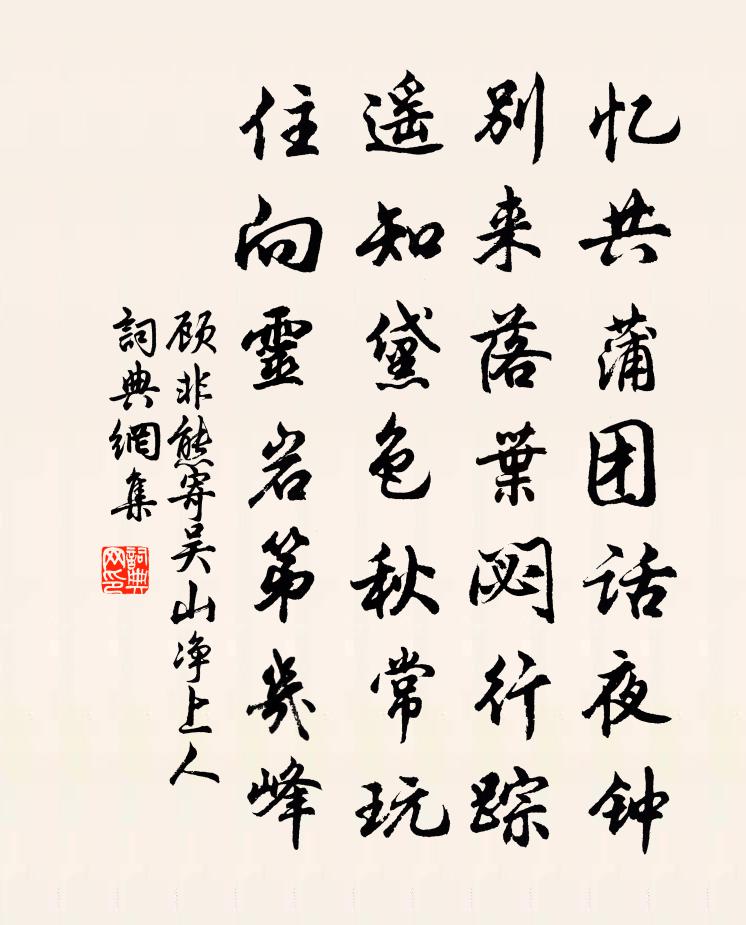 忆共蒲团话夜钟
别来落葉閟行踪
遥知黛色秋常玩
住向靈岩第幾峰
顾非熊寄吴山净上人
詞典網集
詞典网印